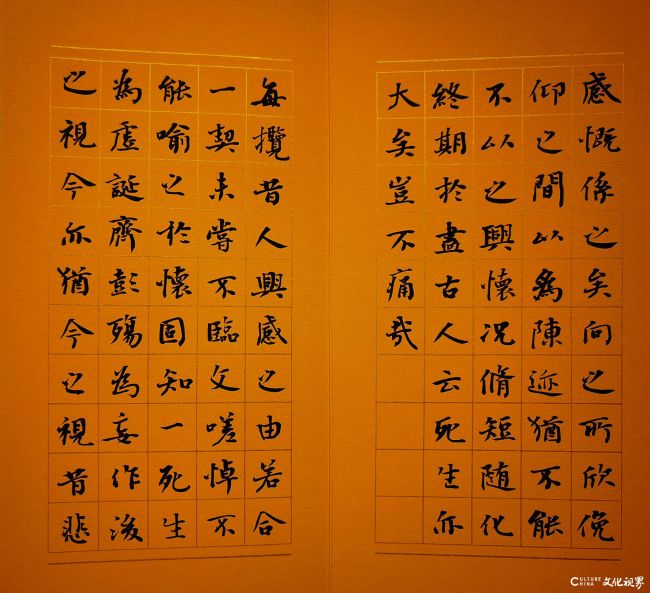 感慨係之矣向之所欣俛
仰之間以為陳迹猶不能
不以之興懷况脩短随化
終期於盡古人云死生亦
大矣豈不痛哉
每攬昔人興感之由若合
一契未嘗不臨文嗟悼不
能喻之於懷固知一死生
為虛誕齊彭殤為妄作後
之視今亦猶今之視昔悲
CULTURE CHINA 文化视界